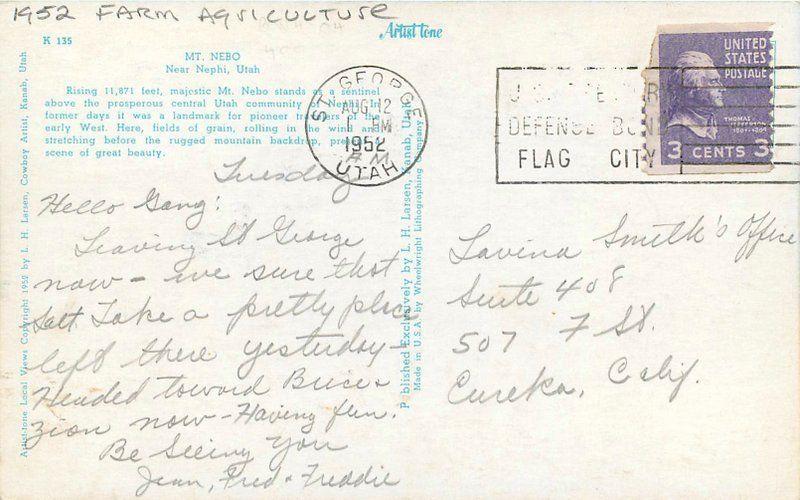 1952 FARM AGRICULTURE
K 135
Artist tone
MT. NEBO
Near Nephi, Utah
Rising 11,871 feet, majestic Mt. Nebo stands as a sentinel
above the prosperous central Utah community of
former days it was a landmark for pioneer of the
early West. Here, fields of grain, rolling in the wind and
stretching before the rugged mountain backdrop,
scene of great beauty.
ST. GEORGE
AUG 12
1952
A.M.
UTAH
DEFENSE BOND
FLAG CITY
UNITED
STATES
POSTAGE
THOMAS
JEFFERSON
1801-1809
3 CENTS 3
Artist-tone Local Views Copyright 1952 by L. H. Larsen, Cowboy Artist, Kanab, Utah
Published Exclusively by L. H. Larsen, Kanab, Utah
Made in U.S.A. by Wheelwright Lithographing Company
Tuesday
Hello Gang:
Leaving St George
now - we sure that
Salt Lake a pretty place
left there yesterday -
Headed toward Brice &
Zion now - Having fun.
Be Seeing You
Jean, Fred & Freddie
Lavina Smith's Office
Suite 408
507 F St.
Eureka, Calif.